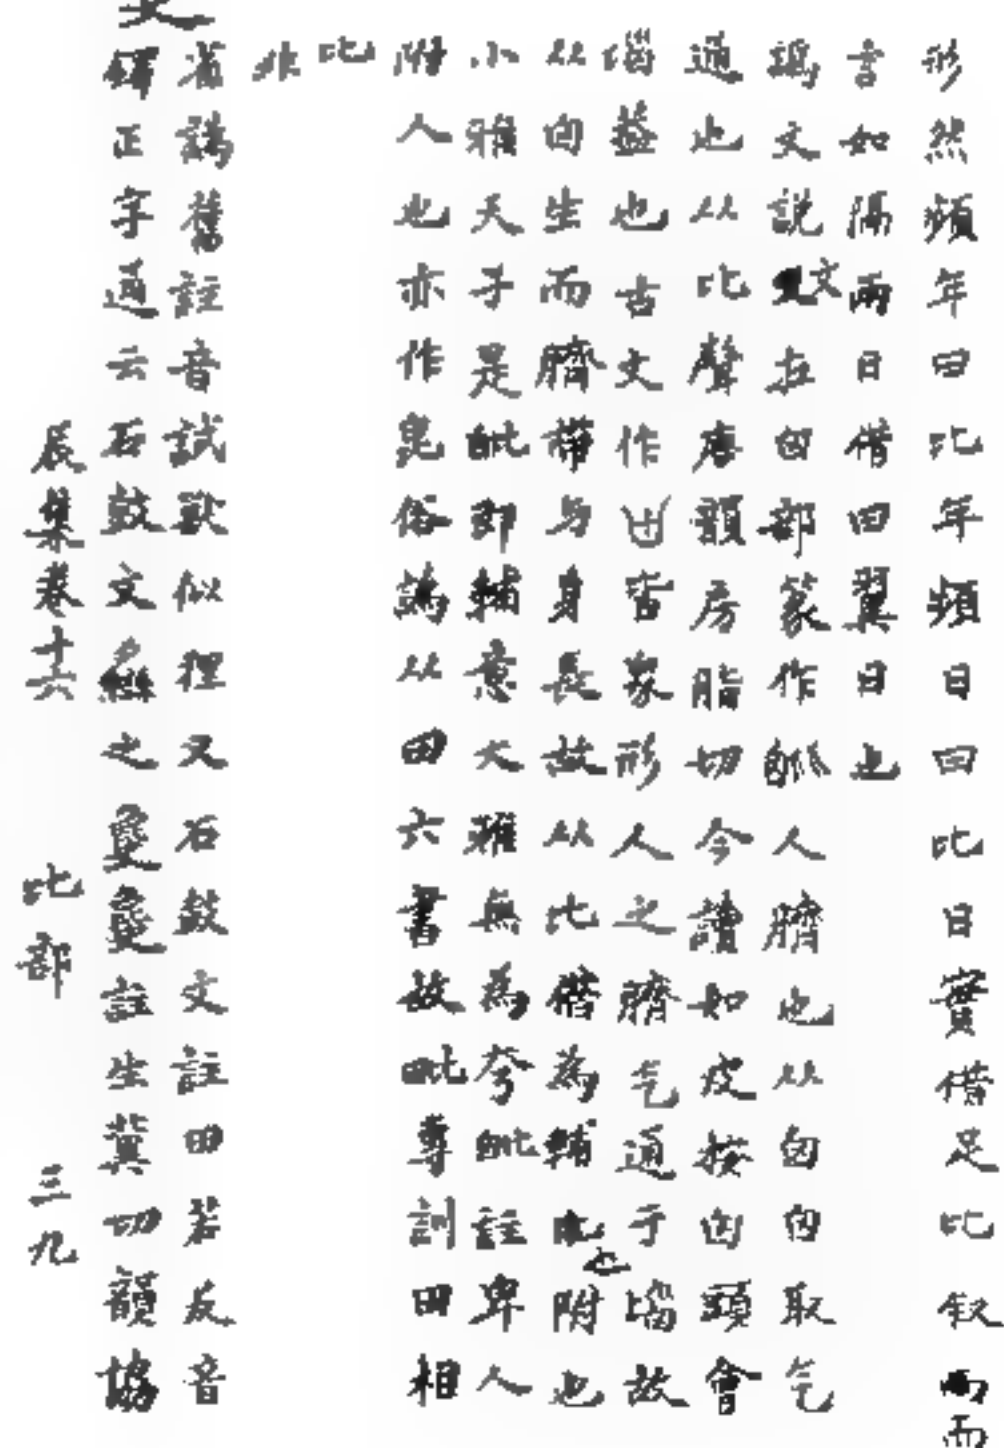 形然頻年曰比年頻日曰比日實借足比釵兩而
言如隔兩日借曰翼日也
譌文說文在囟部篆作人臍也从囟囟取气
通也从比聲唐韻房脂切今讀如皮按囟頭會
𡿺葢也古文作皆象形人之臍气通于𡿺故
从囟生而臍帶与身長故从比偕為輔毗也附也
小雅天子是毗即輔意大雅無為夸毗註卑人
附人也亦作毘俗譌从田六書故毗專訓田相
比
非
省譌舊註音試獸似狸又石鼓文註田若反音
鐸正字通云石鼓文之註生冀切韻協
辰集卷十六 比部 三九